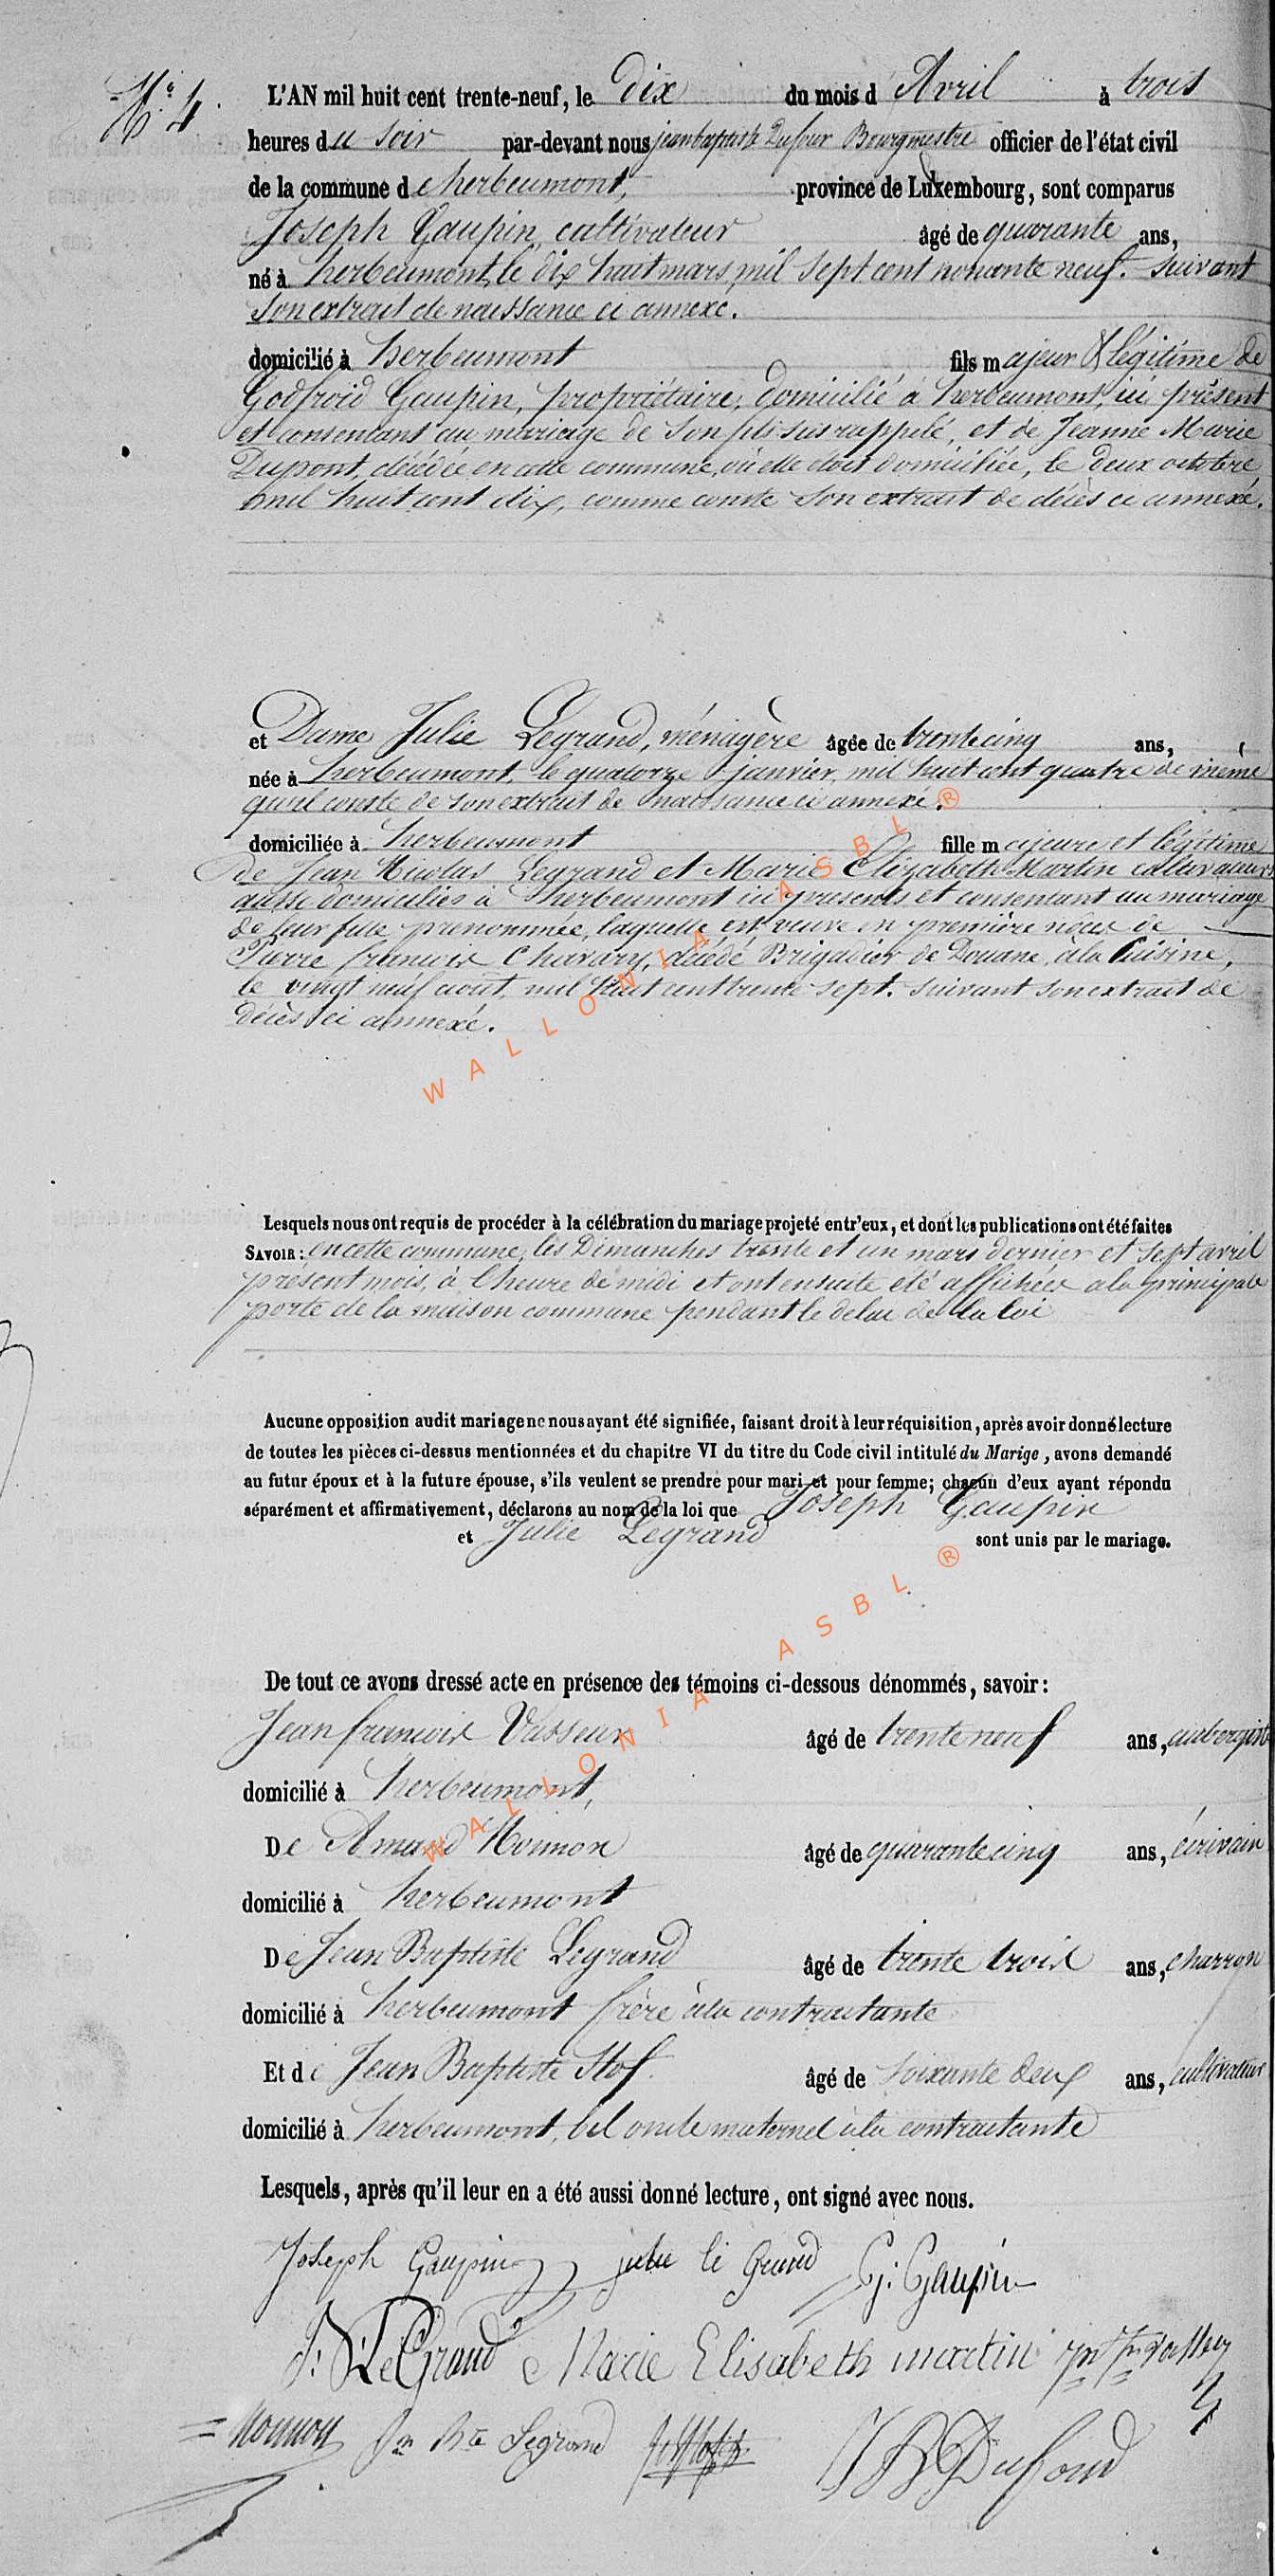 N° 4.
L'AN mil huit cent trente-neuf, le dix du mois d'Avril à trois
heures du soir par-devant nous jean baptiste Dufour Bourgmestre officier de l'état civil
de la commune de herbeumont, province de Luxembourg, sont comparus
Joseph Gaupin, cultivateur âgé de quarante ans,
né à herbeumont, le dix huit mars, mil sept cent nonante neuf. suivant
son extrait de naissance ci annexé.
domicilié à herbeumont fils majeur & légitime de
Godfroid Gaupin, propriétaire, domicilié à herbeumont, ici présent
et consentant au mariage de son fils susrappelé, et de Jeanne Marie
Dupont, décédée en cette commune, où elle étoit domiciliée, le deux octobre
mil huit cent dix, comme conste son extrait de décès ci annexé.
et Dame Julie Legrand, ménagère âgée de trente cinq ans,
née à herbeumont, le quatorze janvier, mil huit cent quatre de même
qu'il conste de son extrait de naissance ci annexé.
domiciliée à herbeumont fille majeure et légitime
de Jean Nicolas Legrand et Marie Elizabeth Martin cultivateurs
aussi domiciliés à herbeumont ici présents et consentant au mariage
de leur fille prénommée, laquelle est veuve en première noces de
Pierre francois Chavary, décédé Brigadier de Douane, à la Cuisine,
le vingt neuf août, mil huit cent trente sept. suivant son extrait de
décès ci annexé.
WALLONIA ASBL ®
Lesquels nous ont requis de procéder à la célébration du mariage projeté entr'eux, et dont les publications ont été faites
SAVOIR : en cette commune, les Dimanches trente et un mars dernier et sept avril
présent mois, à l'heure de midi et ont ensuite été affichées a la principale
porte de la maison commune pendant le délai de la loi
Aucune opposition audit mariage ne nous ayant été signifiée, faisant droit à leur réquisition, après avoir donné lecture
de toutes les pièces ci-dessus mentionnées et du chapitre VI du titre du Code civil intitulé du Marige, avons demandé
au futur époux et à la future épouse, s'ils veulent se prendre pour mari et pour femme; chacun d'eux ayant répondu
séparément et affirmativement, déclarons au nom de la loi que Joseph Gaupin
et Julie Legrand sont unis par le mariage.
WALLONIA ASBL ®
De tout ce avons dressé acte en présence des témoins ci-dessous dénommés, savoir :
Jean francois Vasseur âgé de trente neuf ans, aubergiste
domicilié à herbeumont,
De Amand Monnon âgé de quarante cinq ans, écrivain
domicilié à herbeumont
De Jean Baptiste Legrand âgé de trente trois ans, charron
domicilié à herbeumont frère à la contractante
Et de Jean Baptiste Hof. âgé de soixante deux ans, cultivateur
domicilié à herbeumont, bel oncle maternel à la contractante
Lesquels, après qu'il leur en a été aussi donné lecture, ont signé avec nous.
Joseph Gaupin julie le Grand G: Gaupin
J: N: LeGrand Marie Elisabeth martin jn fn Vasseur
Monnon Jn Bte Legrand
JB Dufour